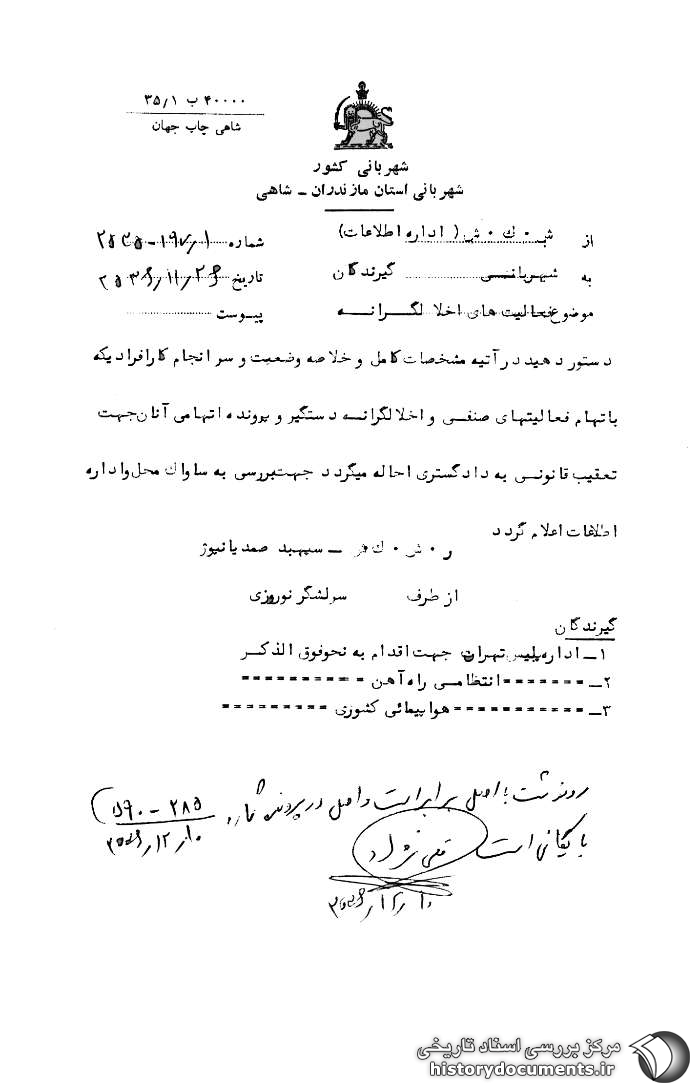 ۴۰۰۰۰ ب ۳۵/۱
شاهی چاپ جهان
شهربانی کشور
شهربانی استان مازندران ـ شاهی
از ش ۰ ك ۰ ش ( اداره اطلاعات)
شماره
به شهربانی گیرندگان
تاریخ ۲۵۳۶/۱۱/۲۶
موضوع فعالیت های اخلا لگرانه
پیوست
دستور دهید در آتیه مشخصات کامل و خلاصه وضعیت و سر انجام کار افرادیکه
باتهام فعالیتهای صنفی و اخلالگرانه دستگیر و پرونده اتهامی آنان جهت
تعقیب قانونی به دادگستری احاله میگردد جهت بررسی به ساواك محل و اداره
اطلاعات اعلام گردد
ر ۰ ش ۰ ك ش ـ سپهبد صمدیانپور
از طرف سرلشگر نوروزی
گیرندگان
۱ـ اداره پلیس تهران جهت اقدام به نحو فوق الذکر
۲ـ = = = = = = = انتظامی راه آهن = = = = = = = = = =
۳ـ = = = = = = = = = = = هواپیمائی کشوری = = = = = = = = =
رونوشت با اصل برابر است و اصل در پرونده شماره ۲۸۵ - ۵۹۰
بایگانی است
۲۵۳۶/۱۲/۱۰
۲۵۳۶/۱۲/۱۰
مرکز بررسی اسناد تاریخی
historydocuments.ir